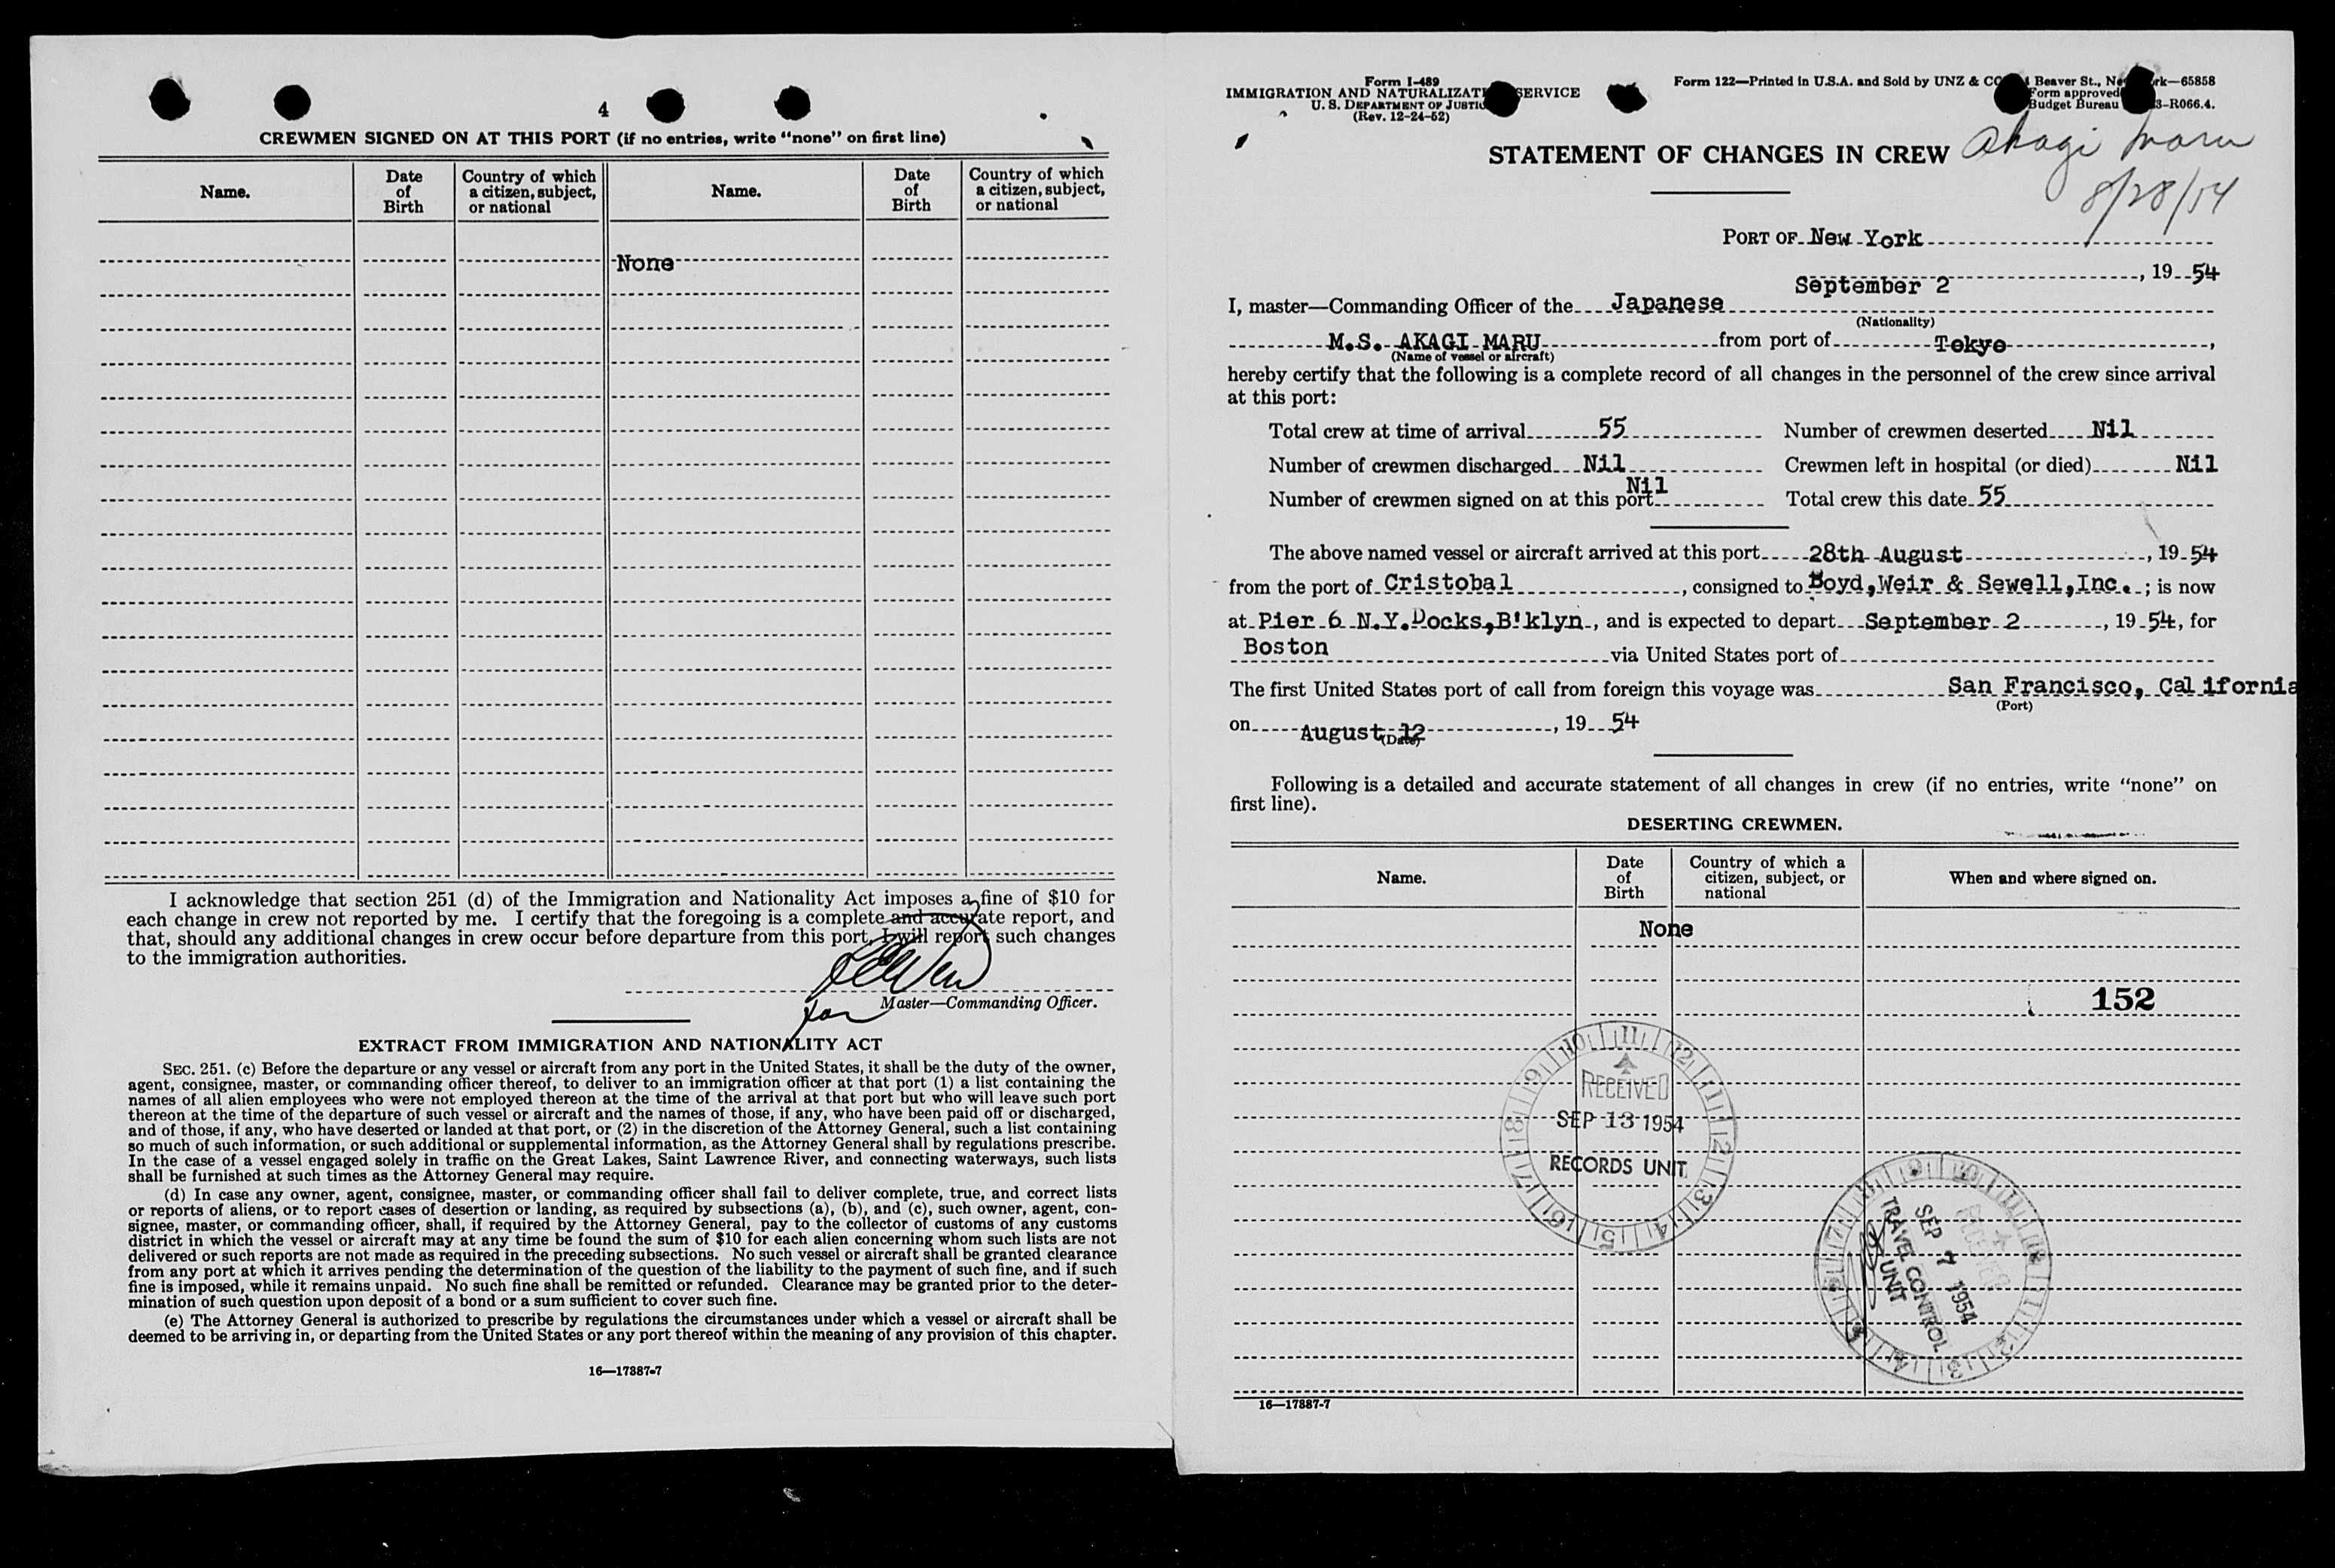 4
CREWMEN SIGNED ON AT THIS PORT (if no entries, write “none” on first line)
Name.
Date of Birth
Country of which a citizen, subject, or national
Name.
Date of Birth
Country of which a citizen, subject, or national
None
I acknowledge that section 251 (d) of the Immigration and Nationality Act imposes a fine of $10 for
each change in crew not reported by me. I certify that the foregoing is a complete and accurate report, and
that, should any additional changes in crew occur before departure from this port, I will report such changes
to the immigration authorities.
for
Master—Commanding Officer.
EXTRACT FROM IMMIGRATION AND NATIONALITY ACT
SEC. 251. (c) Before the departure or any vessel or aircraft from any port in the United States, it shall be the duty of the owner,
agent, consignee, master, or commanding officer thereof, to deliver to an immigration officer at that port (1) a list containing the
names of all alien employees who were not employed thereon at the time of the arrival at that port but who will leave such port
thereon at the time of the departure of such vessel or aircraft and the names of those, if any, who have been paid off or discharged,
and of those, if any, who have deserted or landed at that port, or (2) in the discretion of the Attorney General, such a list containing
so much of such information, or such additional or supplemental information, as the Attorney General shall by regulations prescribe.
In the case of a vessel engaged solely in traffic on the Great Lakes, Saint Lawrence River, and connecting waterways, such lists
shall be furnished at such times as the Attorney General may require.
(d) In case any owner, agent, consignee, master, or commanding officer shall fail to deliver complete, true, and correct lists
or reports of aliens, or to report cases of desertion or landing, as required by subsections (a), (b), and (c), such owner, agent, con-
signee, master, or commanding officer, shall, if required by the Attorney General, pay to the collector of customs of any customs
district in which the vessel or aircraft may at any time be found the sum of $10 for each alien concerning whom such lists are not
delivered or such reports are not made as required in the preceding subsections. No such vessel or aircraft shall be granted clearance
from any port at which it arrives pending the determination of the question of the liability to the payment of such fine, and if such
fine is imposed, while it remains unpaid. No such fine shall be remitted or refunded. Clearance may be granted prior to the deter-
mination of such question upon deposit of a bond or a sum sufficient to cover such fine.
(e) The Attorney General is authorized to prescribe by regulations the circumstances under which a vessel or aircraft shall be
deemed to be arriving in, or departing from the United States or any port thereof within the meaning of any provision of this chapter.
16—17887-7
Form I-489
IMMIGRATION AND NATURALIZATION SERVICE
U. S. DEPARTMENT OF JUSTICE
(Rev. 12-24-52)
Form 122—Printed in U.S.A. and Sold by UNZ & CO Beaver St., New York—65858
Form approved
Budget Bureau 3-R066.4.
STATEMENT OF CHANGES IN CREW
Akagi Maru
8/28/54
PORT OF New York
September 2, 1954
I, master—Commanding Officer of the Japanese
(Nationality)
M.S. AKAGI MARU from port of Tokyo,
(Name of vessel or aircraft)
hereby certify that the following is a complete record of all changes in the personnel of the crew since arrival
at this port:
Total crew at time of arrival 55 Number of crewmen deserted Nil
Number of crewmen discharged Nil Crewmen left in hospital (or died) Nil
Number of crewmen signed on at this port Nil Total crew this date 55
The above named vessel or aircraft arrived at this port 28th August, 1954
from the port of Cristobal, consigned to Boyd,Weir & Sewell,Inc.; is now
at Pier 6 N.Y.Docks,B'klyn, and is expected to depart September 2, 1954, for
Boston via United States port of
The first United States port of call from foreign this voyage was San Francisco, California
(Port)
on August 12, 1954
(Date)
Following is a detailed and accurate statement of all changes in crew (if no entries, write “none” on
first line).
DESERTING CREWMEN.
Name.
Date of Birth
Country of which a citizen, subject, or national
When and where signed on.
None
152
10 11 12 1 2 3 4 5 6 7 8 9
RECEIVED
SEP 13 1954
RECORDS UNIT
RECEIVED
SEP 7 1954
TRAVEL CONTROL
UNIT
16—17887-7